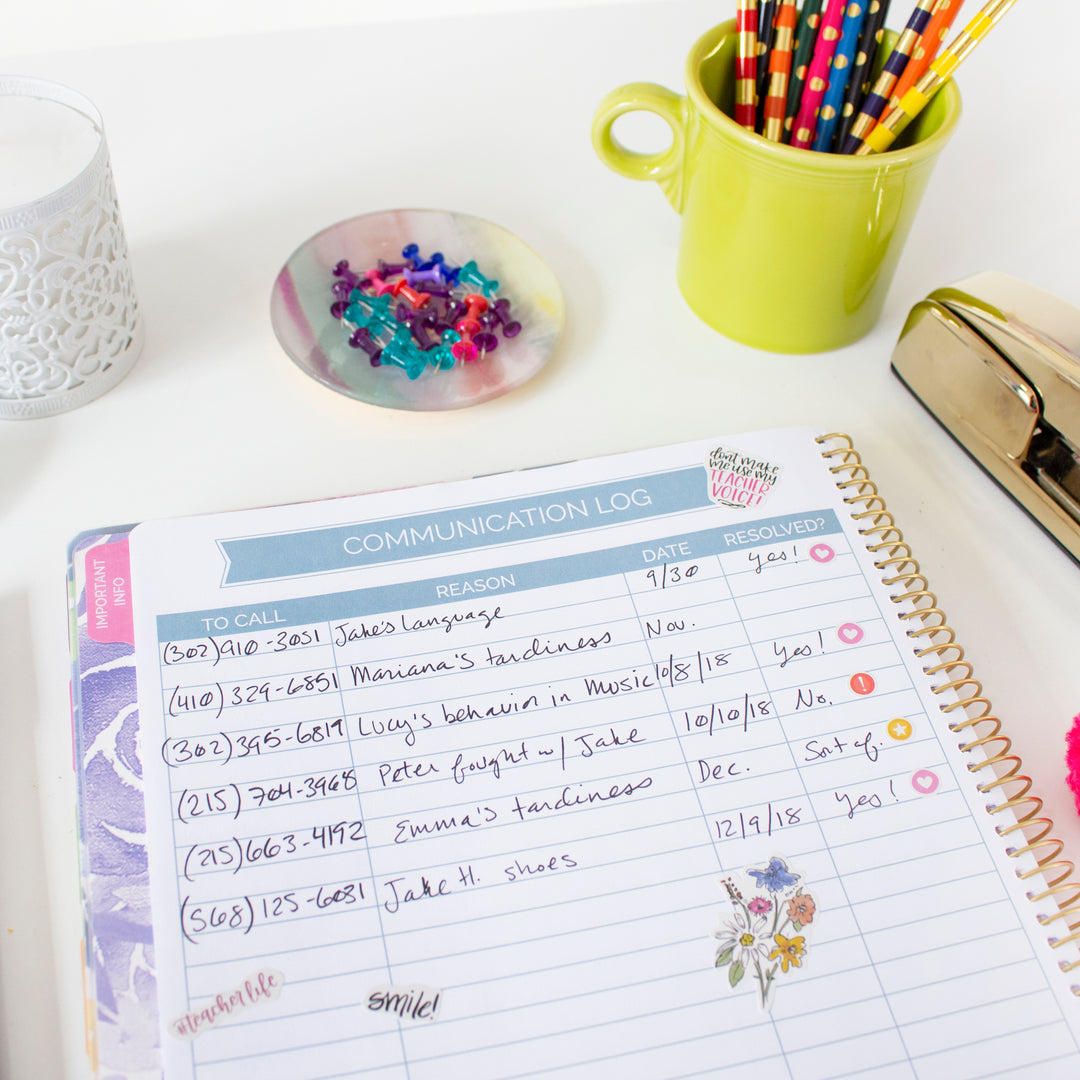 don't make
me use my
TEACHER
VOICE!
COMMUNICATION LOG
IMPORTANT
INFO
TO CALL REASON DATE RESOLVED?
(302)910-3051 Jake's language 9/30 Yes!
(410)329-6851 Mariana's tardiness Nov.
(302)395-6819 Lucy's behavior in Music 10/8/18 Yes!
(215) 704-3968 Peter fought w/ Jake 10/10/18 No. !
(215)663-4192 Emma's tardiness Dec. Sort of.
(568)125-6031 Jake H. shoes 12/9/18 Yes!
#teacher life
smile!